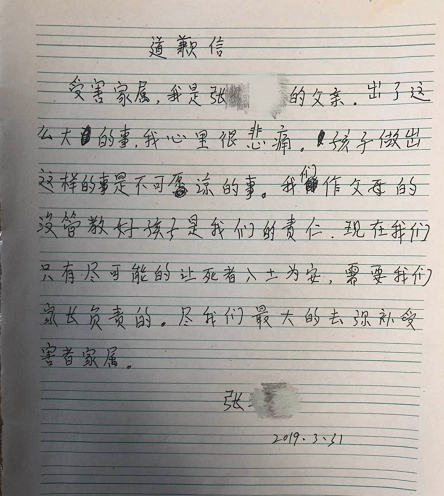 道歉信
受害家属,我是张 的父亲.出了这
么大的事,我心里很悲痛.孩子做出
这样的事是不可原谅的事.我们作父母的
没管教好孩子是我们的责任.现在我们
只有尽可能的让死者入土为安,需要我们
家长负责的。尽我们最大的去弥补受
害者家属。
张
2019.3.31